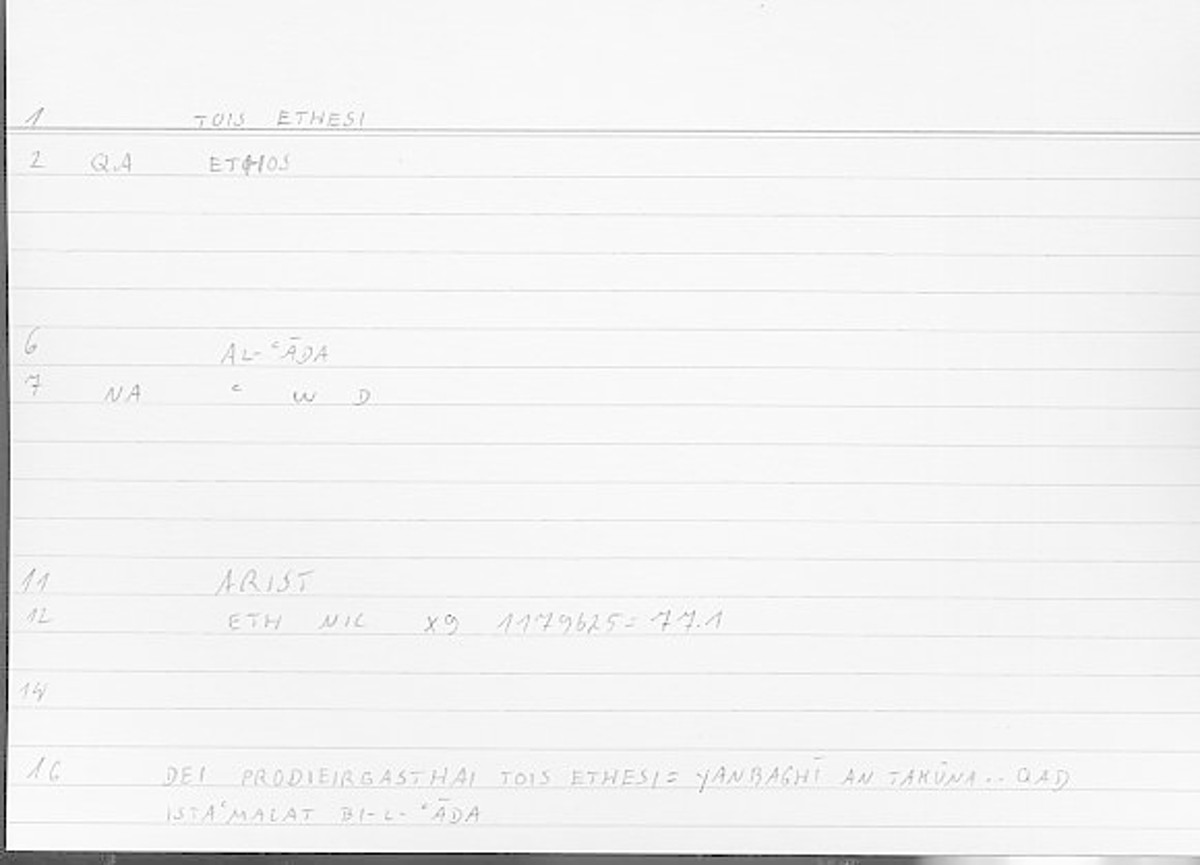 1 TOIS ETHESI
2 QA ETHOS
6 AL-ʿĀDA
7 NA ʿ W D
11 ARIST
12 ETH NIC X9 1179b25= 77.1
14
16 DEI PRODIEIRGASTHAI TOIS ETHESI= YANBAGHĪ AN TAKŪNA.. QAD
ISTAʿMALAT BI-L-ʿĀDA